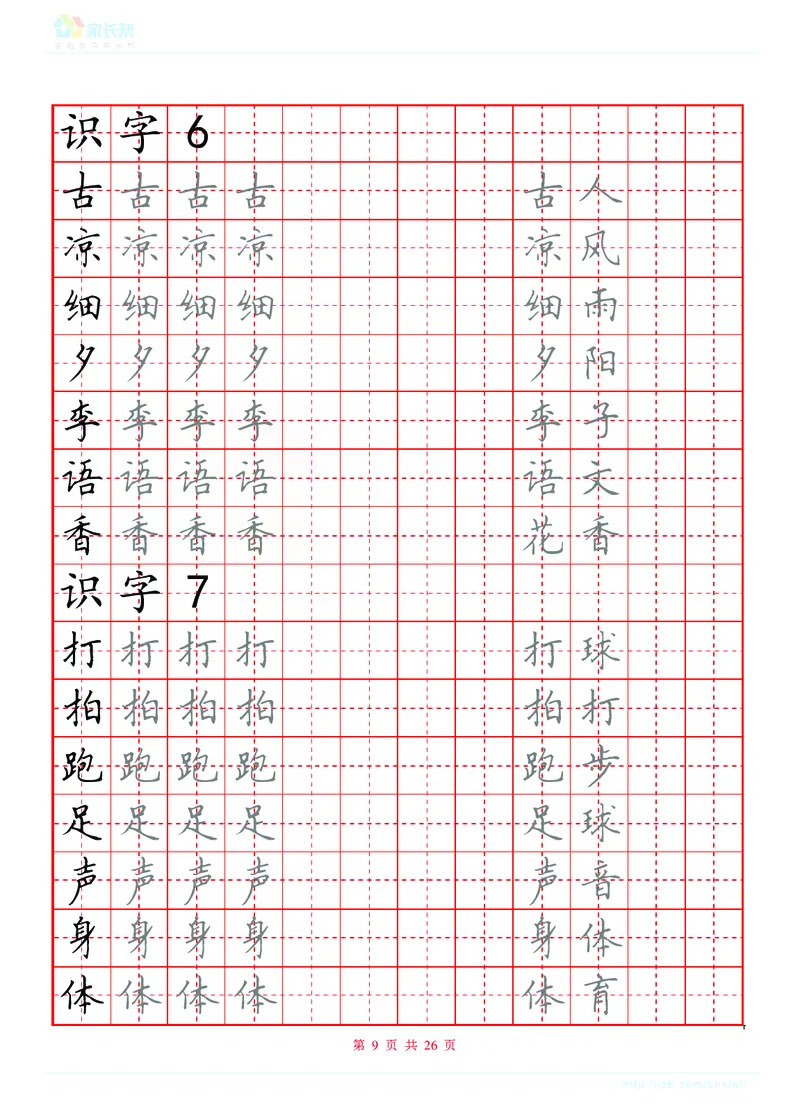 家长帮
识字6
古古古古 古人
凉凉凉凉 凉风
细细细细 细雨
夕夕夕夕 夕阳
李李李李 李子
语语语语 语文
香香香香 花香
识字7
打打打打 打球
拍拍拍拍 拍打
跑跑跑跑 跑步
足足足足 足球
声声声声 声音
身身身身 身体
体体体体 体育
第 9 页 共 26 页